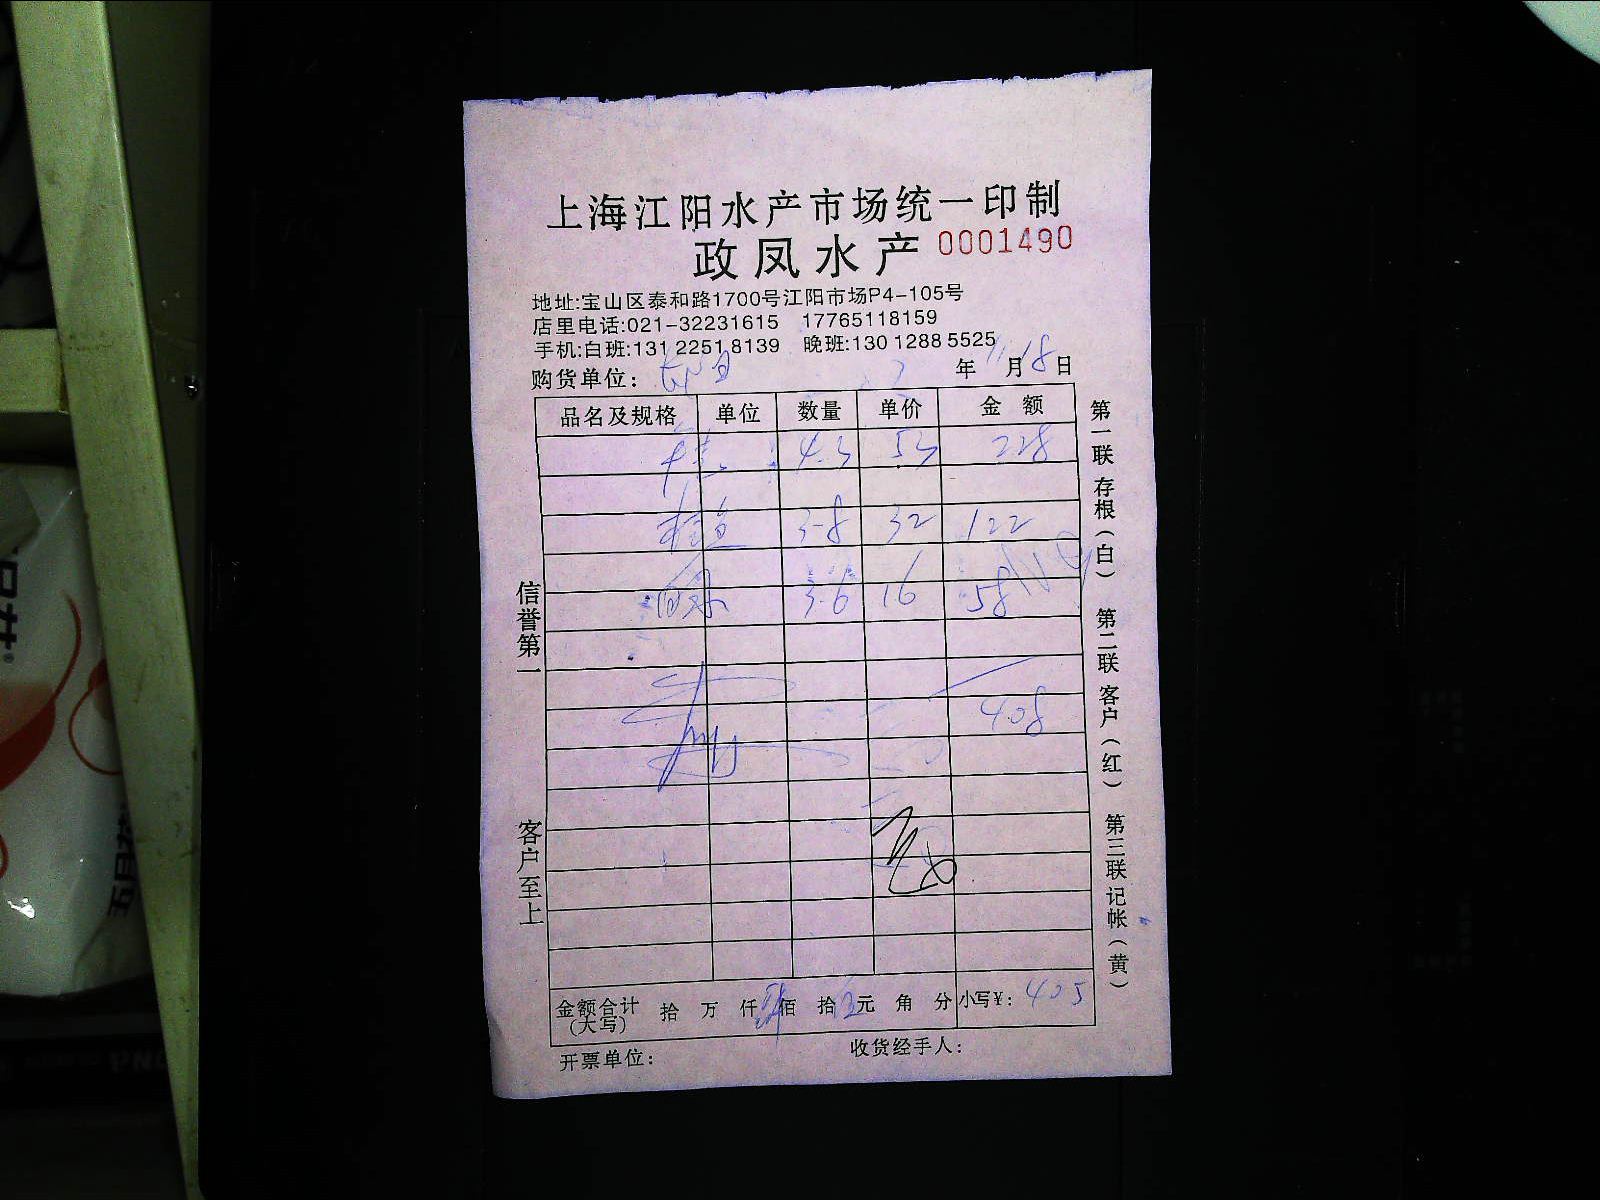 上海江阳水产市场统一印制
政凤水产 0001490
地址:宝山区泰和路1700号江阳市场P4-105号
店里电话:021-32231615 17765118159
手机:白班:131 2251 8139 晚班:130 1288 5525
购货单位: 年 11 月 18 日
品名及规格 单位 数量 单价 金额
4.3 53 228
3.8 32 122
3.6 16 58
408
金额合计(大写) 拾 万 仟 佰 拾 元 角 分 小写¥: 405
开票单位: 收货经手人:
信誉第一
客户至上
第一联 存根(白) 第二联 客户(红) 第三联 记帐(黄)